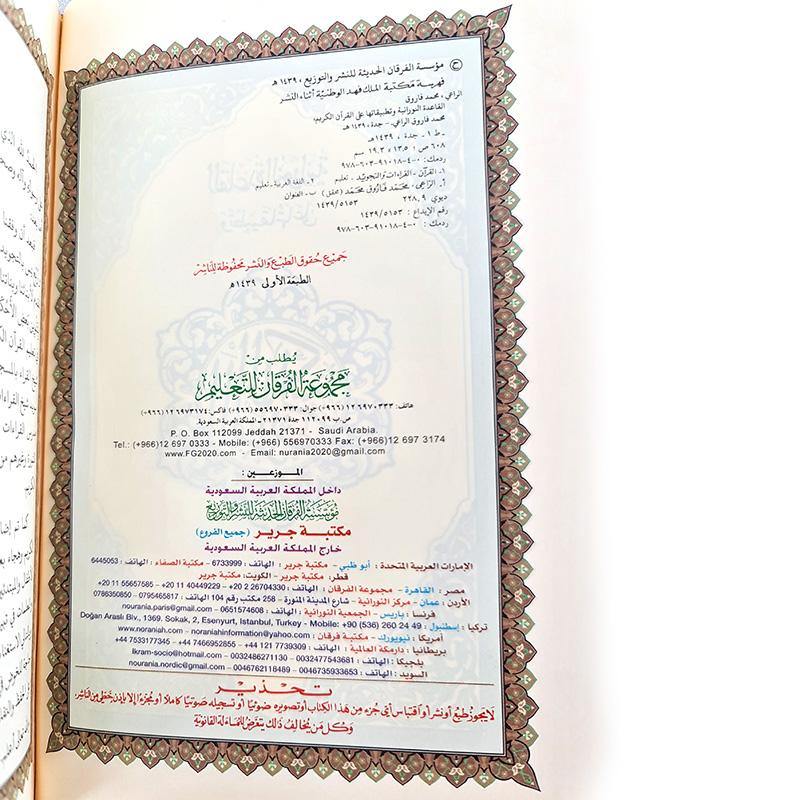 ح مؤسسة الفرقان الحديثة للنشر والتوزيع ، ١٤٣٩ هـ
فهرسة مكتبة الملك فهد الوطنية أثناء النشر
الراعي ، محمد فاروق
القاعدة النورانية وتطبيقاتها على القرآن الكريم؛
محمد فاروق الراعي.- جدة ، ١٤٣٩ هـ
ط ١ - جدة ، ١٤٣٩ هـ
٦٠٨ ص ؛ ١٣,٥ × ١٩,٣ سم
ردمك: ٠-٤-٩١٠١٨-٦٠٣-٩٧٨
١- القرآن - القراءات والتجويد - تعليم ٢- اللغة العربية - تعليم
أ. الراعي، محمد فاروق محمد (محقق) ب- العنوان
ديوي ٢٢٨,٩ ١٤٣٩/٥١٥٣
رقم الإيداع : ١٤٣٩/٥١٥٣
ردمك : ٠-٤-٩١٠١٨-٦٠٣-٩٧٨
جميع حقوق الطبع والنشر محفوظة للناشر
الطبعة الأولى ١٤٣٩ هـ
يطلب من
مجموعة الفرقان للتعليم
هاتف: ٦٩٧٠٣٣٣ ١٢ (٩٦٦+) جوال: ٥٥٦٩٧٠٣٣٣ (٩٦٦+) فاكس: ٦٩٧٣١٧٤ ١٢ (٩٦٦+)
ص.ب ١١٢٠٩٩ جدة ٢١٣٧١ - المملكة العربية السعودية.
P. O. Box 112099 Jeddah 21371 - Saudi Arabia.
Tel.: (+966)12 697 0333 - Mobile: (+966) 556970333 Fax: (+966)12 697 3174
www.FG2020.com - Email: nurania2020@gmail.com
الموزعين :
داخل المملكة العربية السعودية
مؤسسة الفرقان الحديثة للنشر والتوزيع
مكتبة جرير (جميع الفروع)
خارج المملكة العربية السعودية
الإمارات العربية المتحدة : أبو ظبي - مكتبة جرير : الهاتف : 6733999 - مكتبة الصفاء : الهاتف : 6445053
قطر: مكتبة جرير - الكويت: مكتبة جرير
مصر : القاهرة - مجموعة الفرقان : الهاتف : 26704330 2 20+ - 40449229 11 20+ - 55657585 11 20+
الأردن : عمان - مركز النورانية - شارع المدينة المنورة - 258 مكتب رقم 104 الهاتف : 0795465817 - 0786350850
فرنسا : باريس - الجمعية النورانية - الهاتف : 0651574608 - nourania.paris@gmail.com
تركيا : إسطنبول - Doğan Araslı Biv., 1369. Sokak, 2, Esenyurt, Istanbul, Turkey - Mobile: +90 (536) 260 24 49
أمريكا : نيويورك - مكتبة فرقان : www.noraniah.com - noraniahinformation@yahoo.com
بريطانيا - دارمكة العالمية : الهاتف : 7739309 121 44+ - 7466952855 44+ - 7533177345 44+
بلجيكا : الهاتف : 0032477543681 - 0032486271130 - Ikram-socio@hotmail.com
السويد : الهاتف : 0046735933653 - 0046762118489 - nourania.nordic@gmail.com
تحذير
لا يجوز طبع أو نشر أو اقتباس أي جزء من هذا الكتاب أو تصويره ضوئيا أو تسجيله صوتيا كاملا أو مجزءا إلا بإذن خطي من الناشر،
وكل من يخالف ذلك يتعرض للمساءلة القانونية